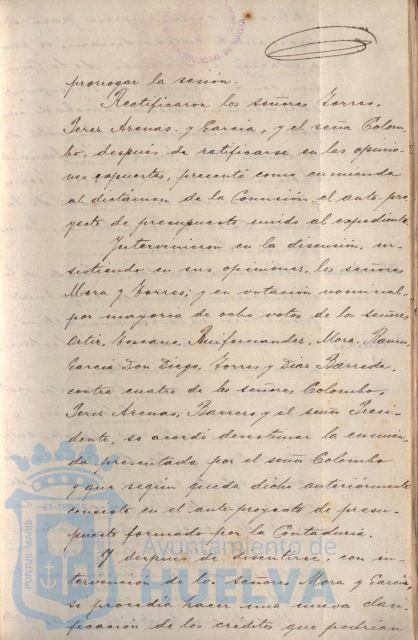 prorrogar la sesión.
Rectificaron los señores Torres,
Perez Arenas y García, y el señor Colom-
bo, después de ratificarse en las opinio-
nes expuestas, presentó como enmienda
al dictámen de la Comisión el ante-pro-
yecto de presupuesto unido al expediente.
Intervinieron en la discusión, in-
sistiendo en sus opiniones, los señores
Mora y Torres; y en votación nominal,
por mayoría de ocho votos de los señores
Ortiz, Toscano, Ruifernandez, Mora,
García Don Diego, Torres y Dias Barreda,
contra cuatro de los señores Colombo,
Perez Arenas, Barrero y el señor Presi-
dente, se acordó desestimar la enmien-
da presentada por el señor Colombo
y que según queda dicho anteriormente
consiste en el ante-proyecto de presu-
puesto formado por la Contaduría.
Y después de discutirse, con in-
tervención de los señores Mora y García,
si procedía hacer una nueva clasi-
ficación de los créditos que podrían
PORTUS MARIS
Ayuntamiento de
HUELVA